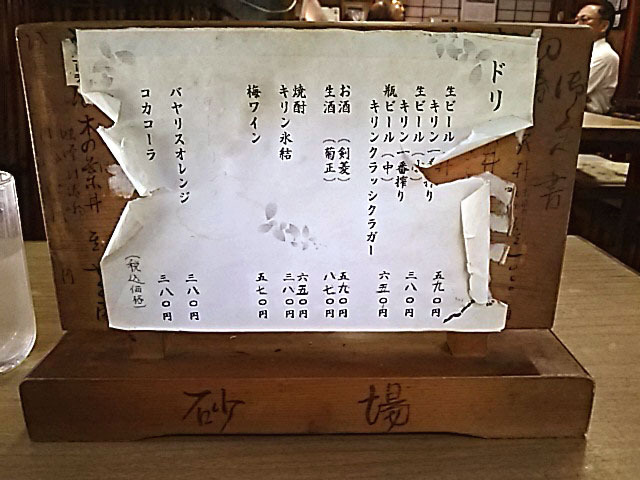 ドリ
生ビール
キリン一番搾り
五九〇円
生ビール(小)
キリン一番搾り
三八〇円
瓶ビール(中)
キリンクラッシクラガー
六五〇円
お酒 (剣菱)
五九〇円
生酒 (菊正)
八七〇円
焼酎
六五〇円
キリン氷結
三八〇円
梅ワイン
五七〇円
バヤリスオレンジ
三八〇円
コカコーラ
三八〇円
(税込価格)
砂場